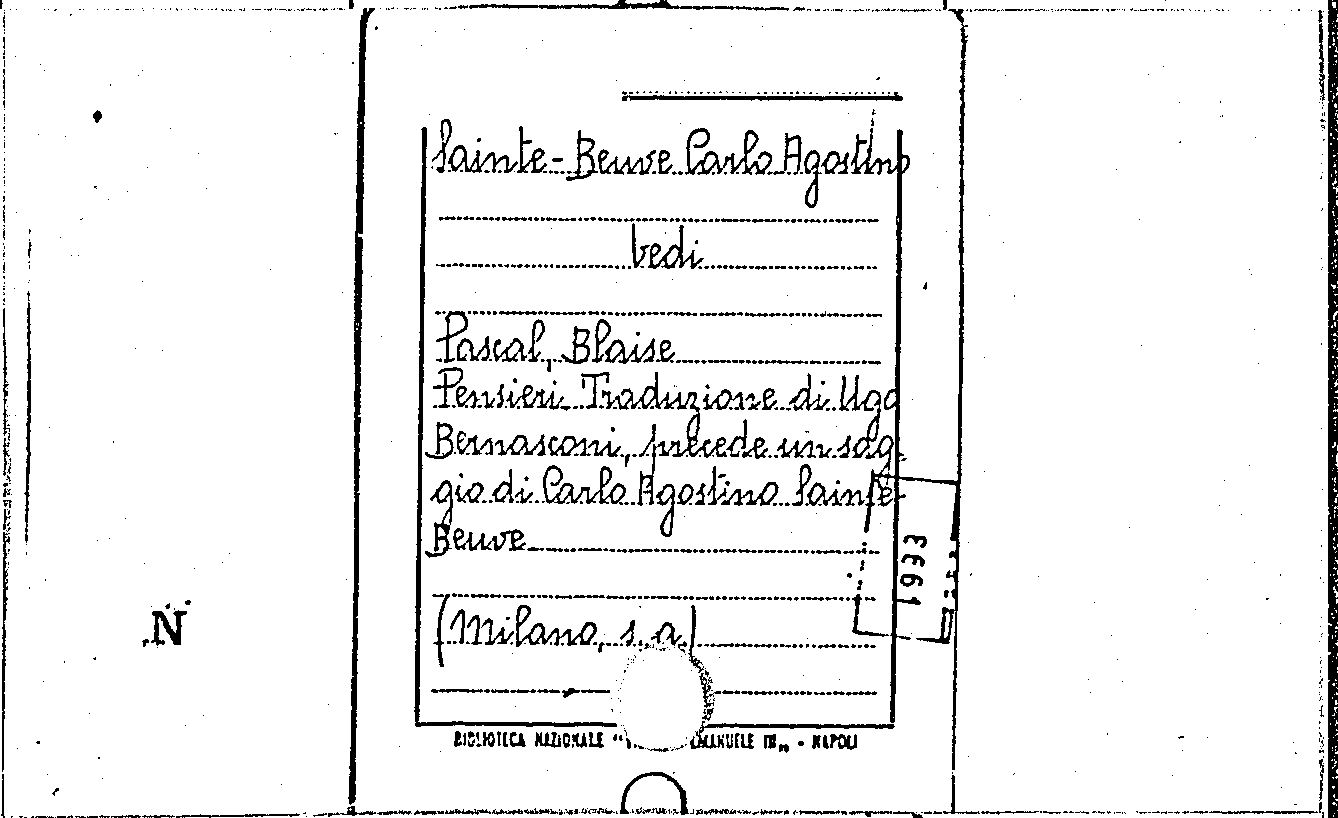 Sainte-Beuve Carlo Agostino
vedi
Pascal, Blaise
Pensieri. Traduzione di Ugo
Bernasconi, precede un sag-
gio di Carlo Agostino Sainte-
Beuve
1933
(Milano, s. a.)
N
BIBLIOTECA NAZIONALE " EMANUELE III„ - NAPOLI